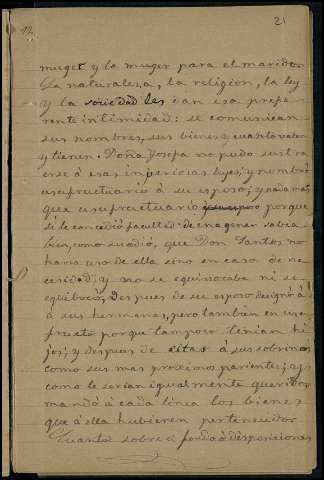 21
12
muger y la muger para el marido.
La naturaleza, la religion, la ley
y la sociedad les dan esa prepa-
rente intimidad: se comunican
sus nombres, sus bienes y cuanto valen
y tienen. Doña Josefa no pudo sustra-
erse á esas imperiosas leyes; y nombró
usufructuario á su esposo; y nada mas
que usufructuario porque
si le concedió facultad de enagenar sabia
bien, como sucedió, que Don Santos no
haria uso de ella sino en caso de ne-
cesidad; y no se equivocaba ni se
equibocó; despues de su esposo designó á
á sus hermanas, pero tambien en usu-
fructo porque tampoco tenian hi-
jos; y despues de estas á sus sobrinos
como sus mas procsimos parientes; y
como le serian igualmente queridos
mandó á cada linea los bienes
que á ella hubieren pertenecido
Cuanto sobre el fondo á disposiciones